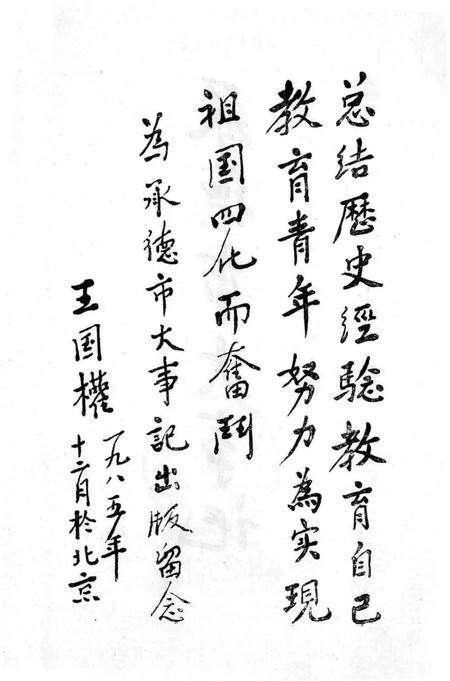 总结歷史經驗教育自己
教育青年努力為实現
祖国四化而奮鬥
為承德市大事記出版留念
王国權
一九八五年
十二月於北京